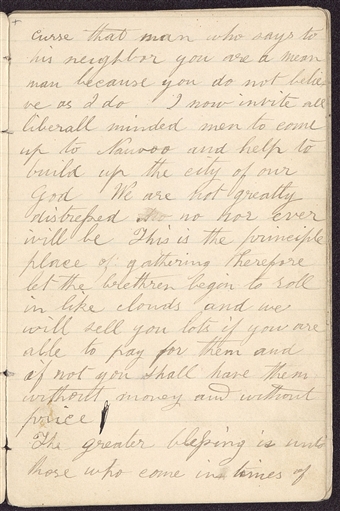 curse that man who says to
his neighbor you are a mean
man because you do not belie
ve as I do I now invite all
liberall minded men to come
up to Nauvoo and help to
build up the city of our
God We are not greatly
distressed no nor ever
will be This is the principle
place of gathering therefore
let the brethren begin to roll
in like clouds and we
will sell you lots if you are
able to pay for them and
if not you shall have them
without money and without
price
The greater blessing is unto
those who come in times of